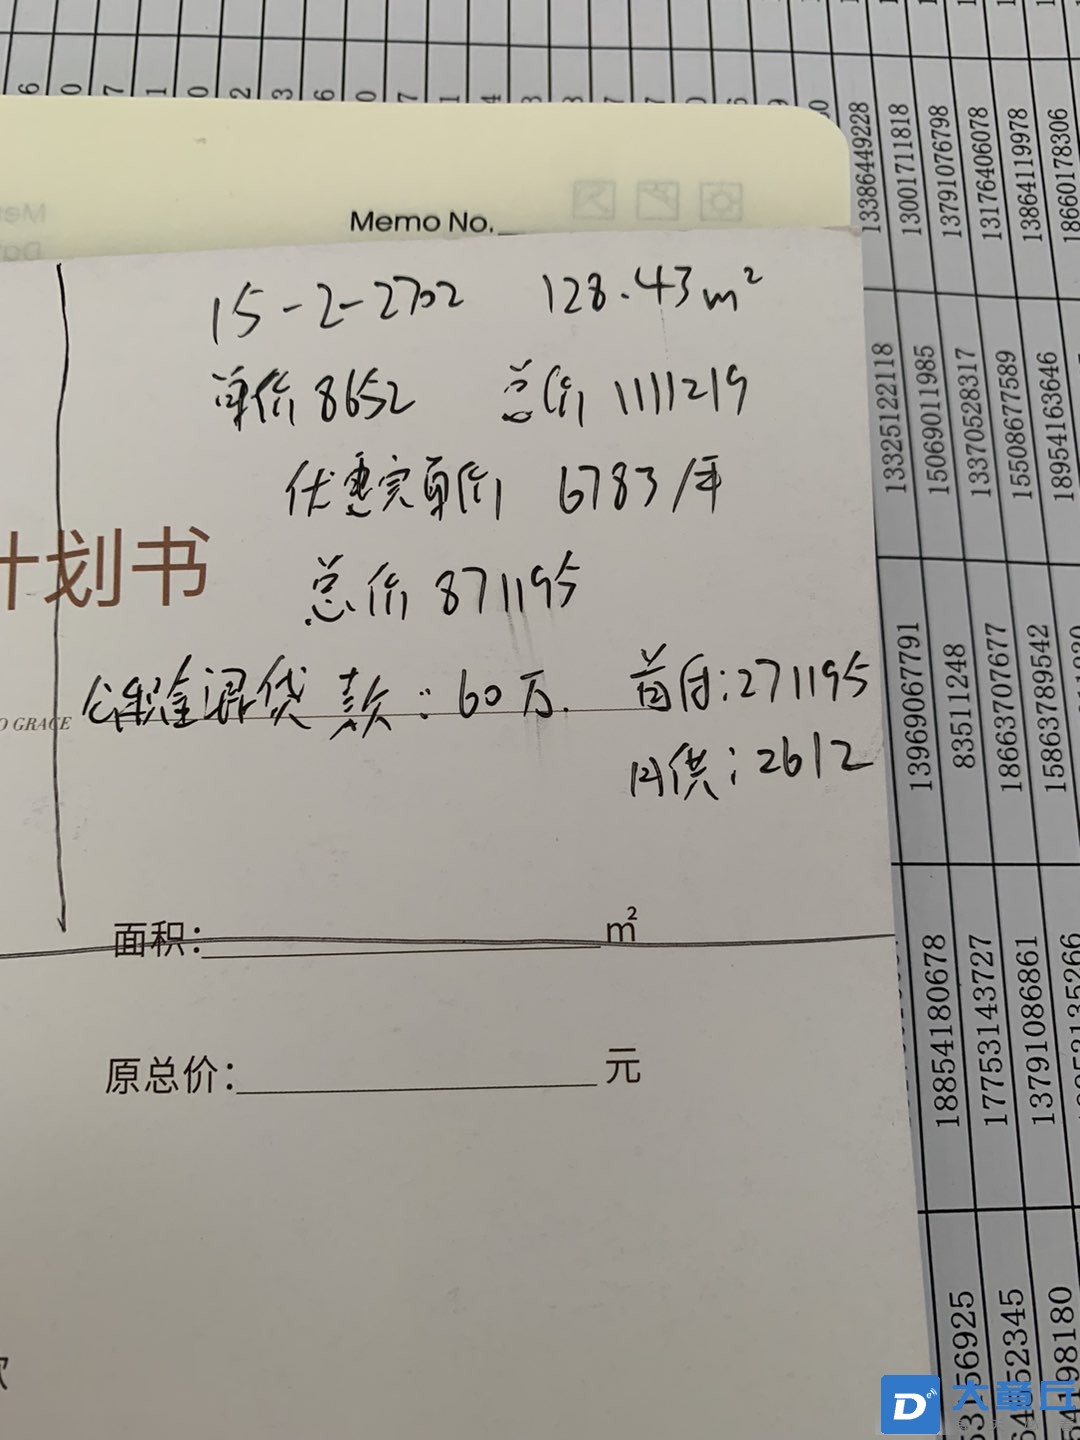 Memo No.
15-2-2702 128.43m²
单价8652 总价1111219
优惠完单价 6783/平
总价 871195
计划书
公积金混贷款:60万. 首付:271195
O GRACE
月供:2612
面积: m²
原总价: 元
13386449228
13001711818
13791076798
13176406078
13864119978
18660178306
13325122118
15069011985
13370528317
15508677589
18954163646
13969067791
83511248
18663707677
15863789542
18854180678
17753143727
13791086861
大章丘